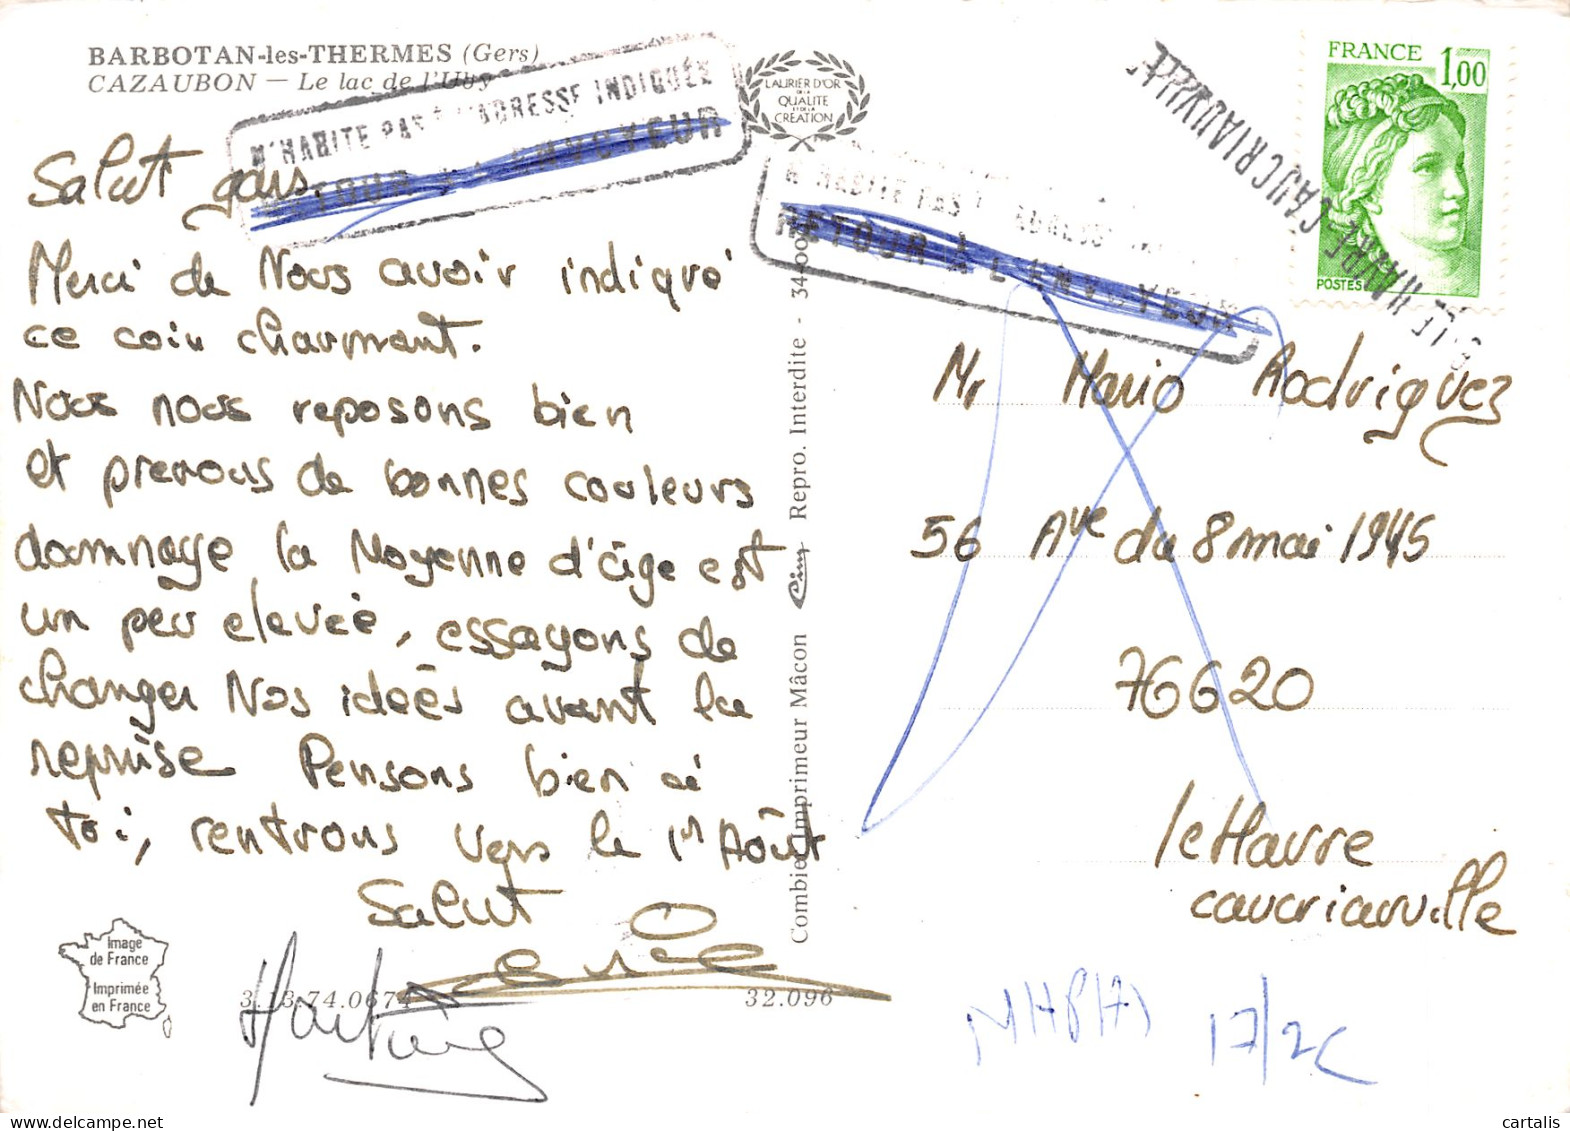 BARBOTAN-les-THERMES (Gers)
CAZAUBON — Le lac de l'Uby
N'HABITE PAS À L'ADRESSE INDIQUÉE
RETOUR À L'ENVOYEUR
Salut gars
Merci de Nous avoir indiqué
ce coin charmant.
Nous nous reposons bien
et prenons de bonnes couleurs
domnage la Moyenne d'âge est
un peu elevée, essayons de
changer Nos ideés avant la
reprise Pensons bien à
toi, rentrons vers le 1er Août
Salut
Image
de France
Imprimée
en France
3.13.74.0674
32.096
Combier Imprimeur Mâcon Cim Repro. Interdite - 34-00
LAURIER D'OR
DE LA
QUALITE
ET DE LA
CREATION
N'HABITE PAS
RETOUR À L'ENVOYEUR
FRANCE 1,00
POSTES
LE HAVRE-CAUCRIAUVILLE
Mr Mario Rodriguez
56 Ave du 8 mai 1945
76620
le Havre
caucriauville
17/2C
cartalis.com